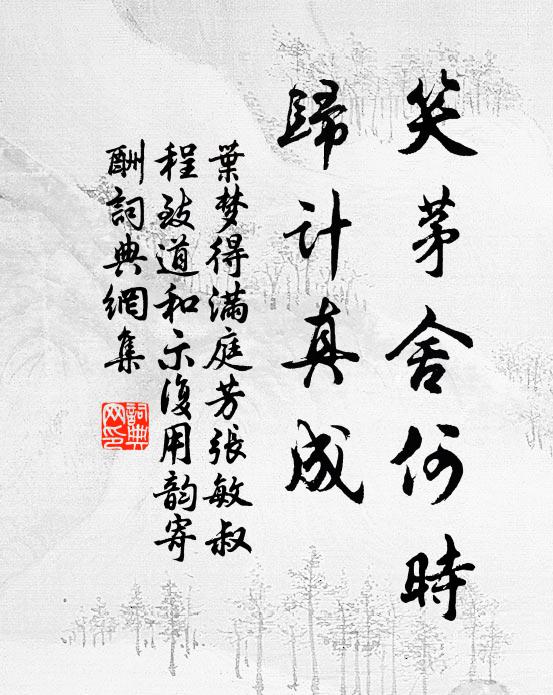 笑茅舍何時
歸计真成
葉梦得滿庭芳張敏叔
程致道和示復用韵寄
酬詞典網集
詞典网印